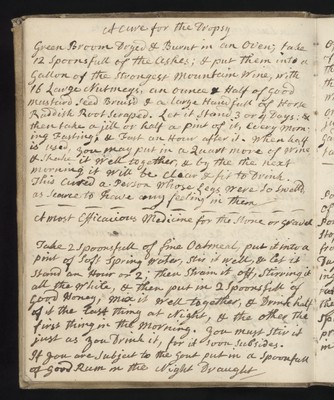 A Cure for the Dropsy
Green Broom Dryed & Burnt in an Oven; Take
12 Spoonsfull of the Ashes; & put them into a
Gallon of the Strongest Mountain Wine, with
16 Large Nutmegs, an ounce & Half of Good
mustard Seed Bruisd & a large Handfull of Horse
Raddish Root Scraped. Let it Stand 3 or 4 Days; &
then take a jill or half a pint of it, Every Morn
ing Fasting; & Fast an Hour after it. When half
is used, you may put in a Quart more of Wine
& Shake it Well together, & by the the next
morning it Will be clear & fit to Drink.
This Cured a Person Whose Legs Were So Swelld
as Scarce to have any feeling in them
A most Efficacious Medicine for the Stone or Gravel
Take 2 Spoonsfull of fine Oatmeal, put it into a
pint of Soft Spring Water, Stir it well, & let it
Stand an Hour or 2; then Strain it off, Stirring it
all the While, & then put in 2 Spoonsfull of
Good Honey, mix it Well together, & Drink half
of it the Last thing at Night, & the other the
first thing in the Morning. You must Stir it
just as you Drink it, for it Soon Subsides.
If you are Subject to the Gout put in a Spoonfull
of Good Rum in the Night Draught